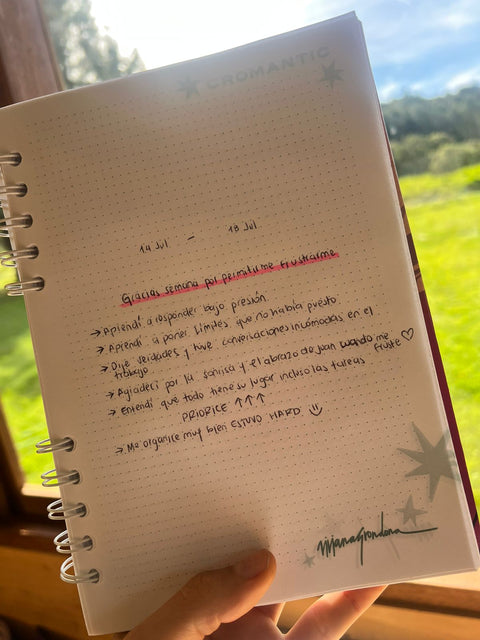 CROMANTIC
14 Jul - 18 Jul
Gracias semana por permitirme frustrarme
→ Aprendí a responder bajo presión
→ Aprendí a poner límites que no había puesto
→ Dije verdades y tuve conversaciones incómodas en el
trabajo
→ Agradecí por la sonrisa y el abrazo de Juan cuando me
fruste ♡
→ Entendí que todo tiene su lugar incluso las tareas
PRIORICE ↑↑↑
→ Me organice muy bien ESTUVO HARD
vivianagrondona